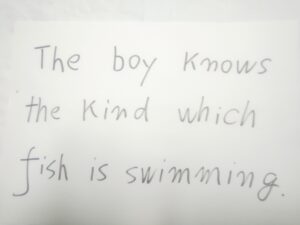 The boy knows
the kind which
fish is swimming.